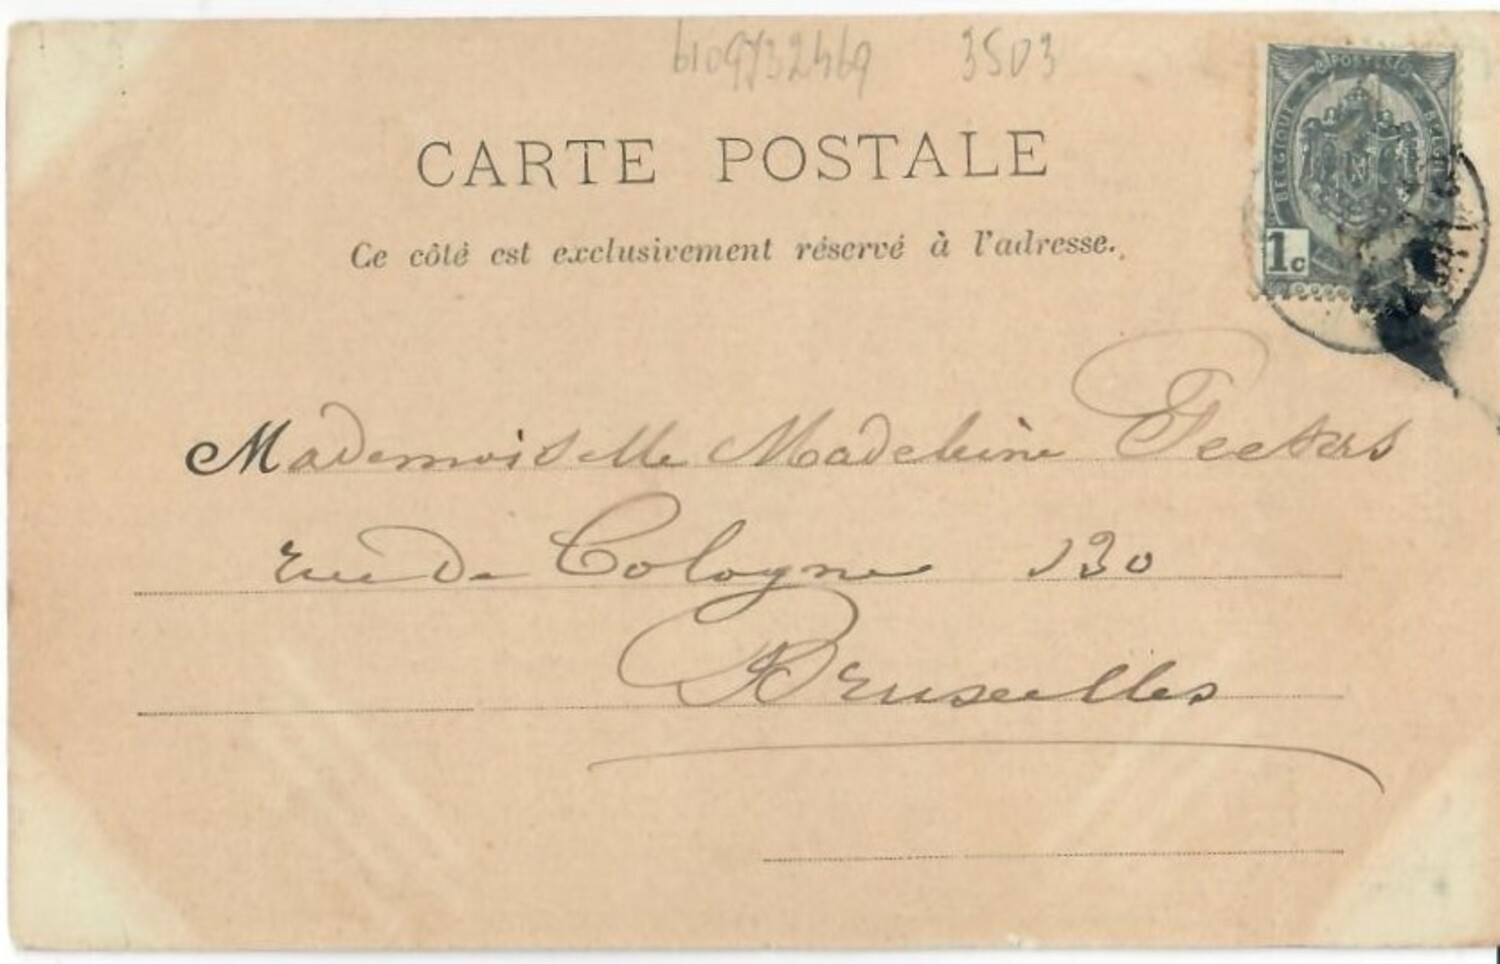 6109732469 3503
CARTE POSTALE
POSTES
BELGIQUE
1c
Ce côté est exclusivement réservé à l'adresse.
Mademoiselle Madeleine
rue de Cologne 130
Bruxelles